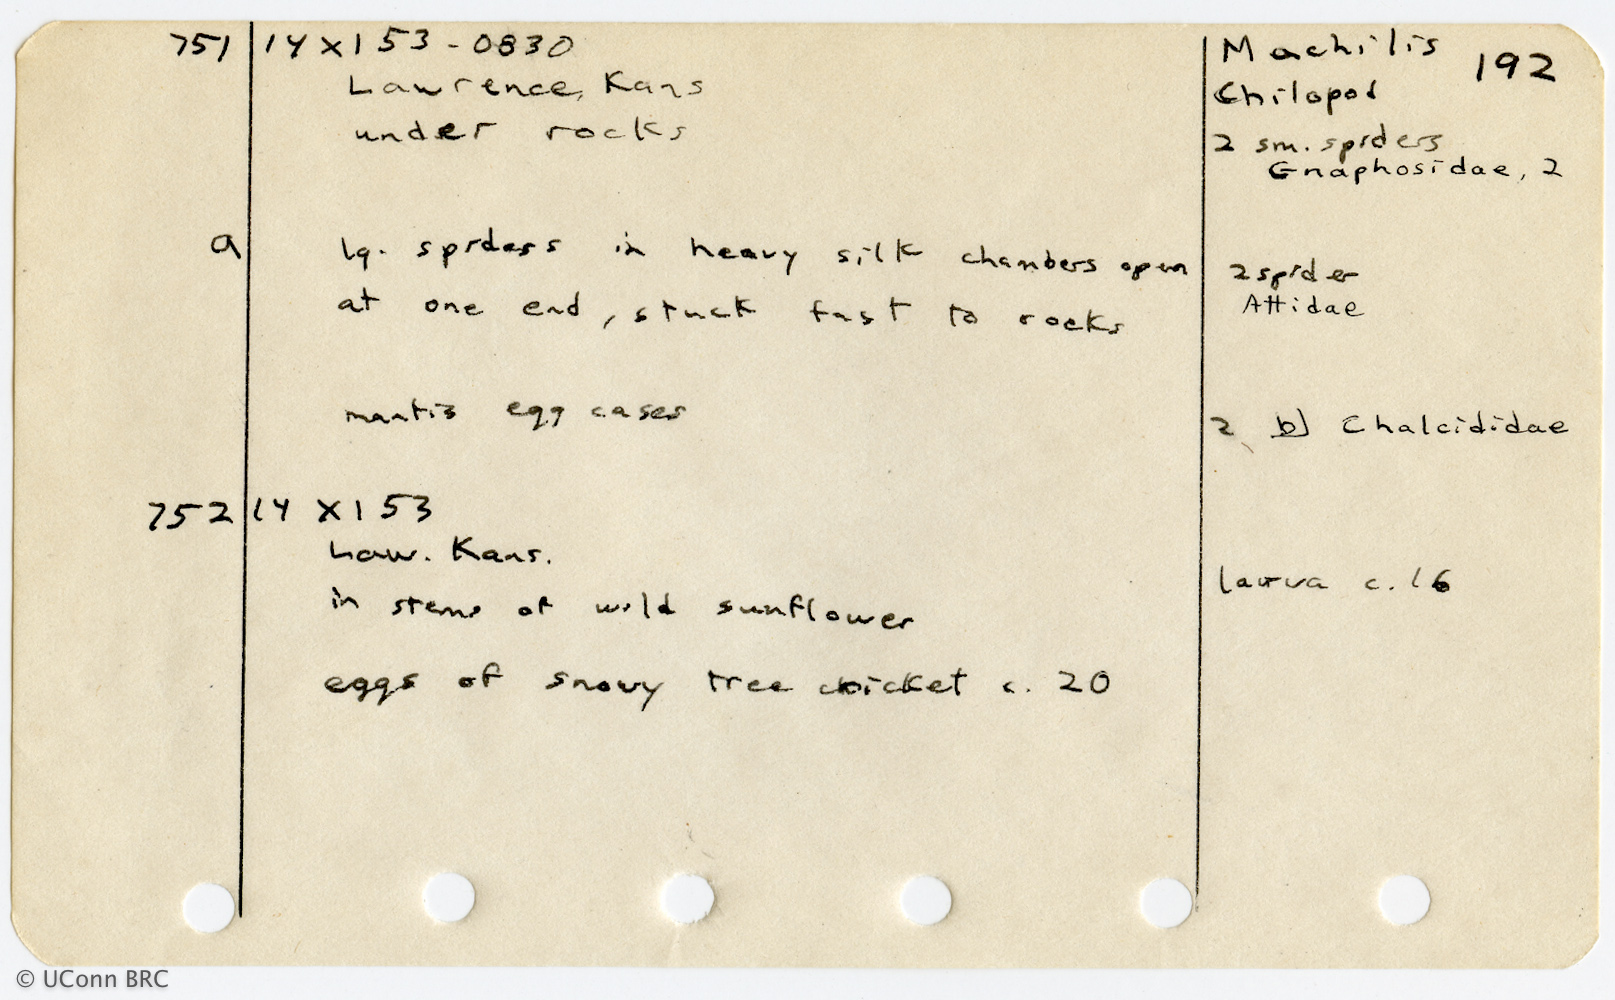 751 14 XI 53 - 0830
Lawrence, Kans
under rocks
Machilis 192
Chilopod
2 sm. spiders
Gnaphosidae, 2
a lg. spiders in heavy silk chambers open
at one end, stuck fast to rocks
2 spider
Attidae
mantis egg cases
2 b) Chalcididae
752 14 XI 53
Law. Kans.
in stems of wild sunflower
larva c. 16
eggs of snowy tree cricket c. 20
© UConn BRC